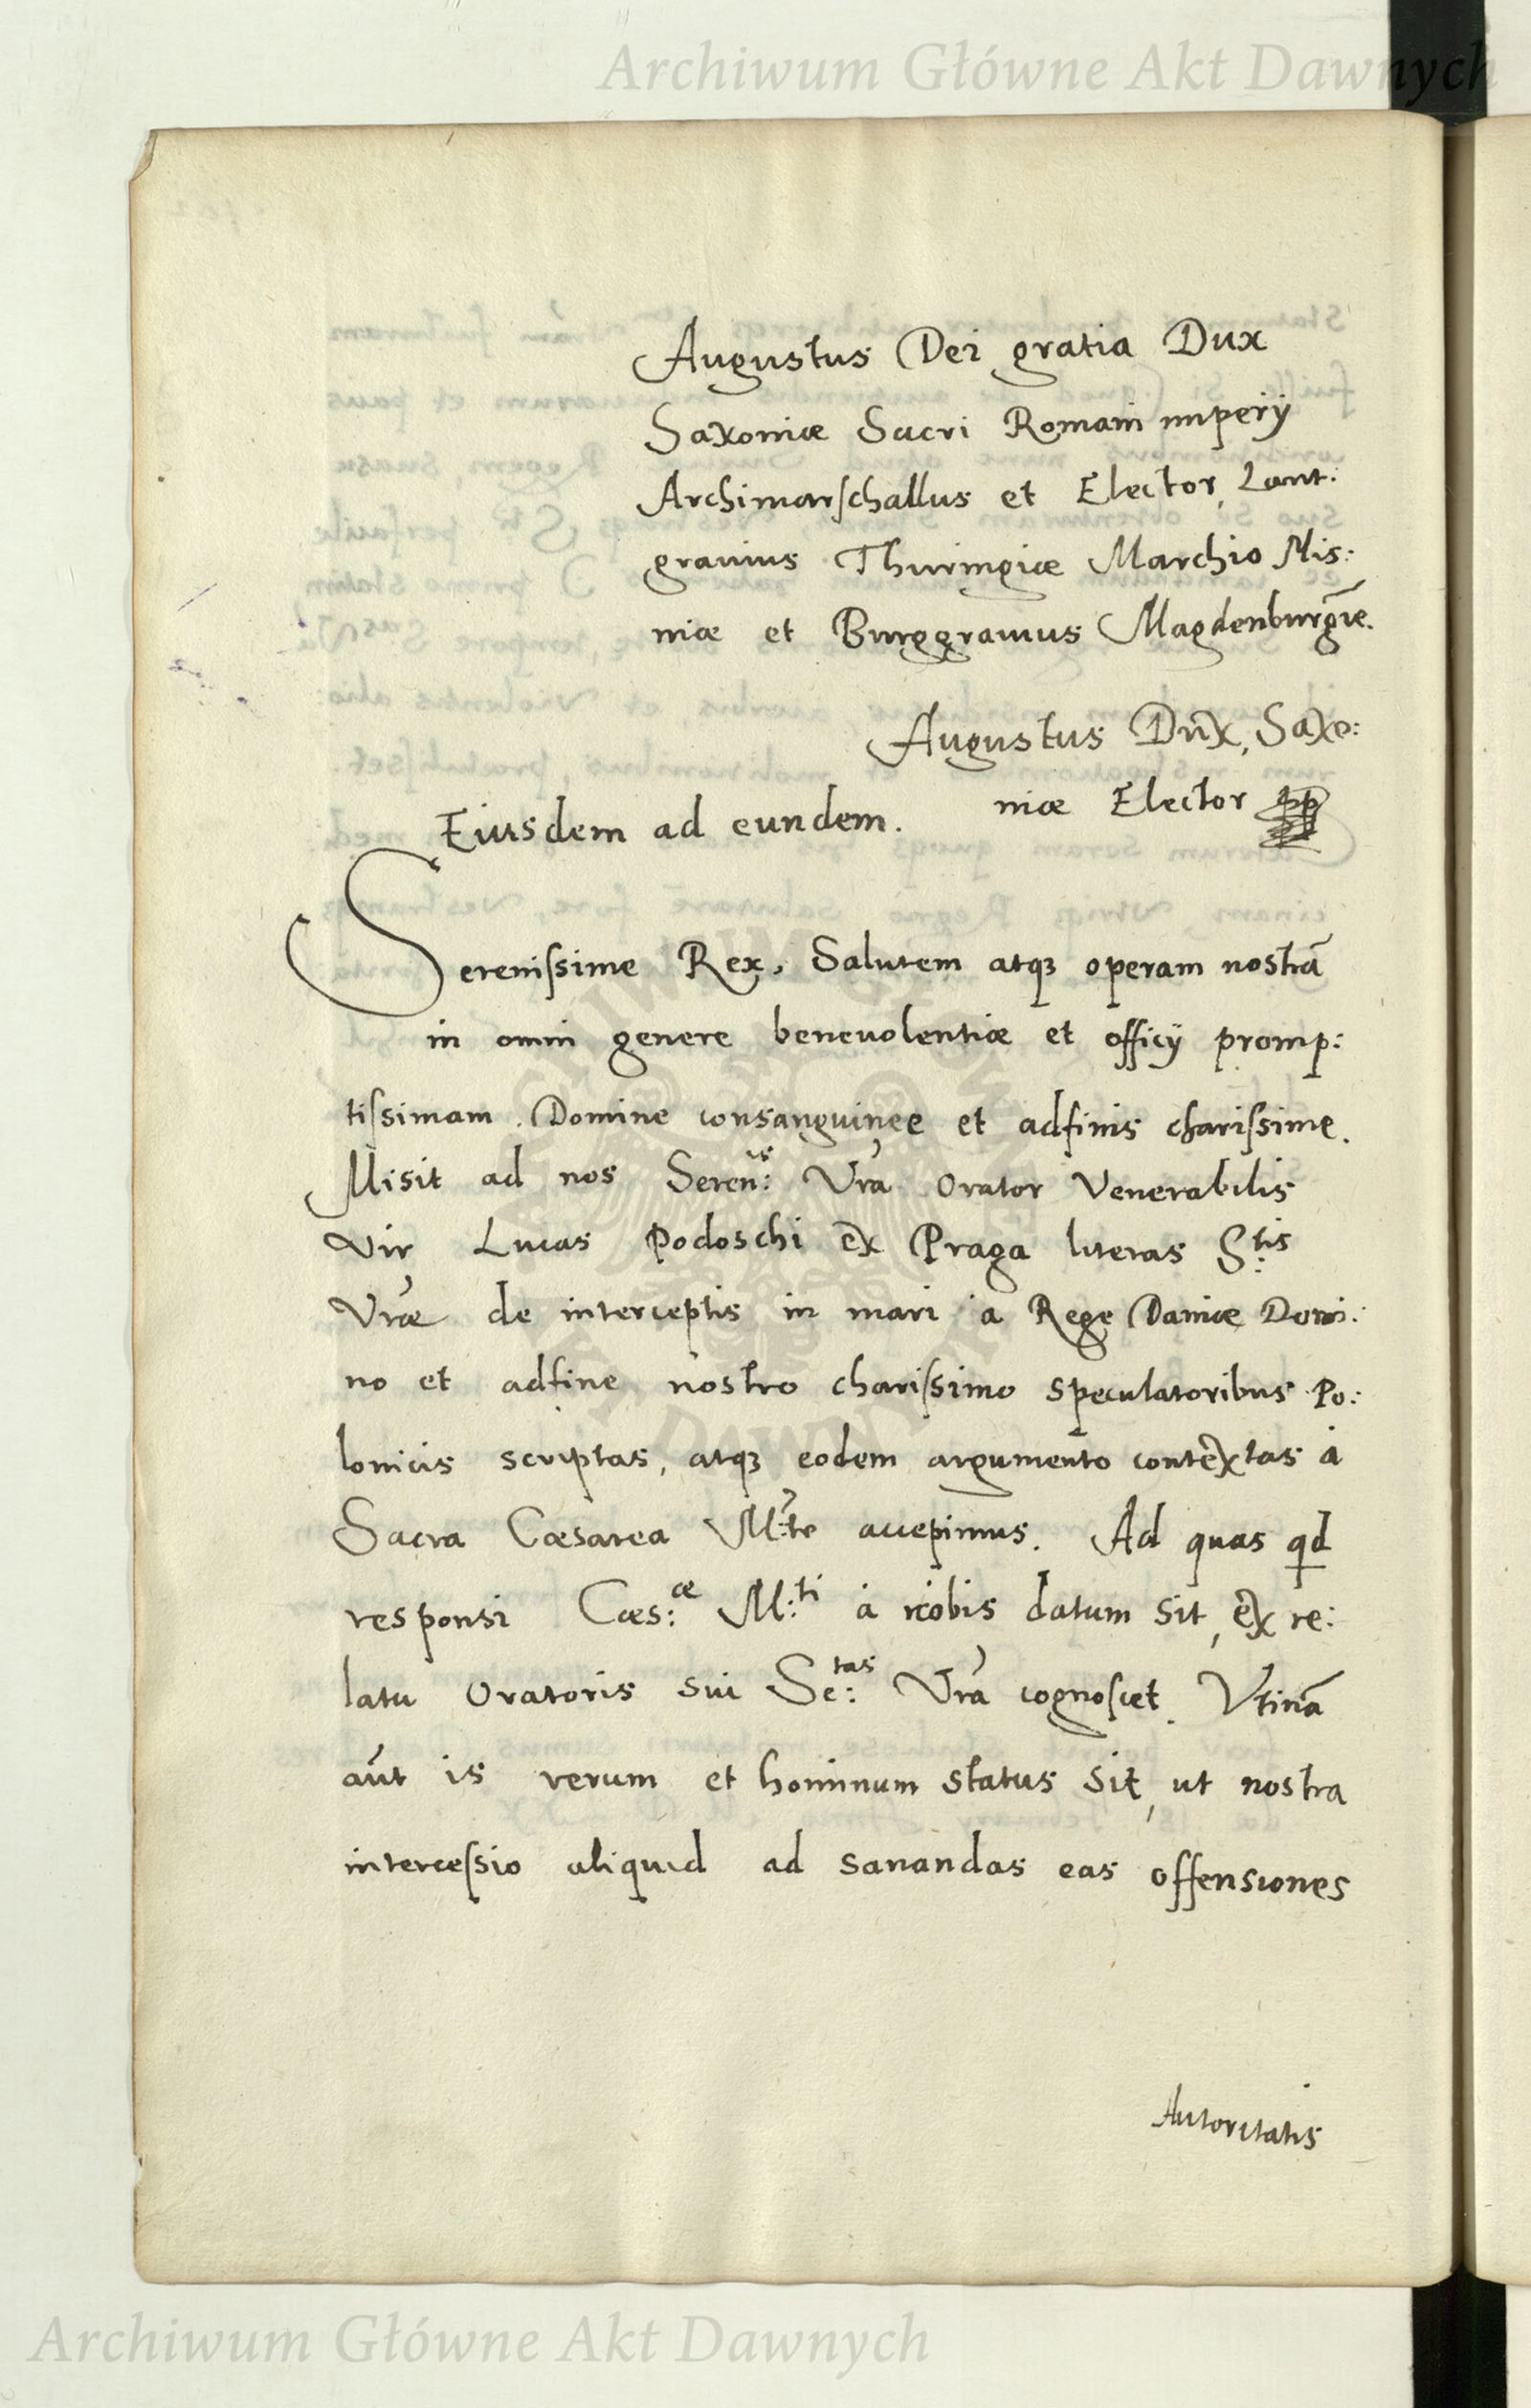 Archiwum Główne Akt Dawnych
Augustus Dei gratia Dux
Saxoniæ Sacri Romani imperij
Archimarschallus et Elector, Lant:
gravius Thuringiæ Marchio Mis:
niæ et Burggravius Magdenburgie.
Augustus Dux, Saxo:
niæ Elector
Eiusdem ad eundem.
Serenissime Rex, Salutem atqꝫ operam nostrā
in omni genere benevolentiæ et officij promp:
tissimam. Domine consanguinee et adfinis charissime.
Misit ad nos Seren:is Vra Orator Venerabilis
Vir Lucas Podoschi ex Praga literas S:tis
Vræ de interceptis in mari a Rege Daniæ Domi:
no et adfine nostro charissimo speculatoribus Po:
lonicis scriptas, atqꝫ eodem argumento contextas à
Sacra Cæsarea M:te accepimus. Ad quas qd
responsi Cæs:æ M:ti à nobis datum sit, ex re:
latu Oratoris sui Se:tas Vra cognoscet. Vtinā
aut is rerum et hominum status sit, ut nostra
intercessio aliquid ad sanandas eas offensiones
Autoritatis
Archiwum Główne Akt Dawnych